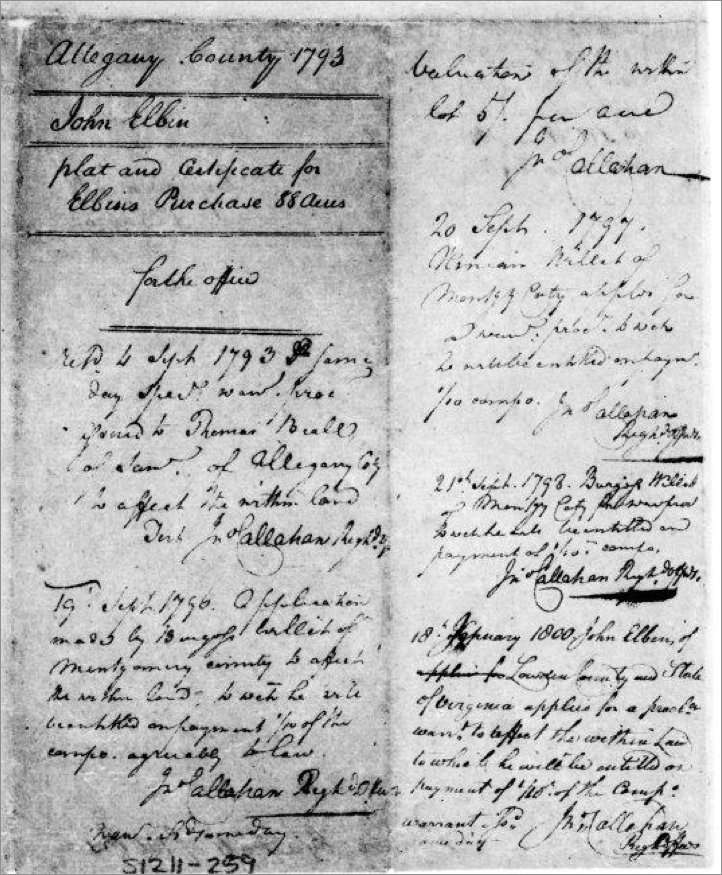 Allegany County 1793
John Elbin
plat and Certificate for
Elbins Purchase 88 acres
for the office
4 Sept 1793 same
day Spec.l warr.t proc
issued to Thomas Beall
of Sam.l of Allegany Coty
to affect the within land
Test Jn.o Callahan Reg.r
19.th Sept. 1796. Application
made by Burgess Willet of
Montgomery county to affect
the within land, to wch he will
be entitled on payment 1/10 of the
compo. agreeably to law.
Jn.o Callahan Reg.r
Same day.
S1211-259
Valuation of the within
lot 5/. per acre
Jn.o Callahan
20 Sept. 1797.
Ninian Willet of
Montg.y Coty applies for
a warr.t proc.s to wch
he will be entitled on paym.t
1/10 compo. Jn.o Callahan
21.st Sept. 1798. Burgess Willet
of Montg.y Coty
to wch he will be entitled on
payment of 1/10.th compo.
Jn.o Callahan
18.th January 1800 John Elbin, of
Lowden County and State
of Virginia applies for a
warr.t to affect the within Land
to which he will be entitled on
payment of 1/10.th of the Comp.o
warrant
same day
Jn.o Callahan